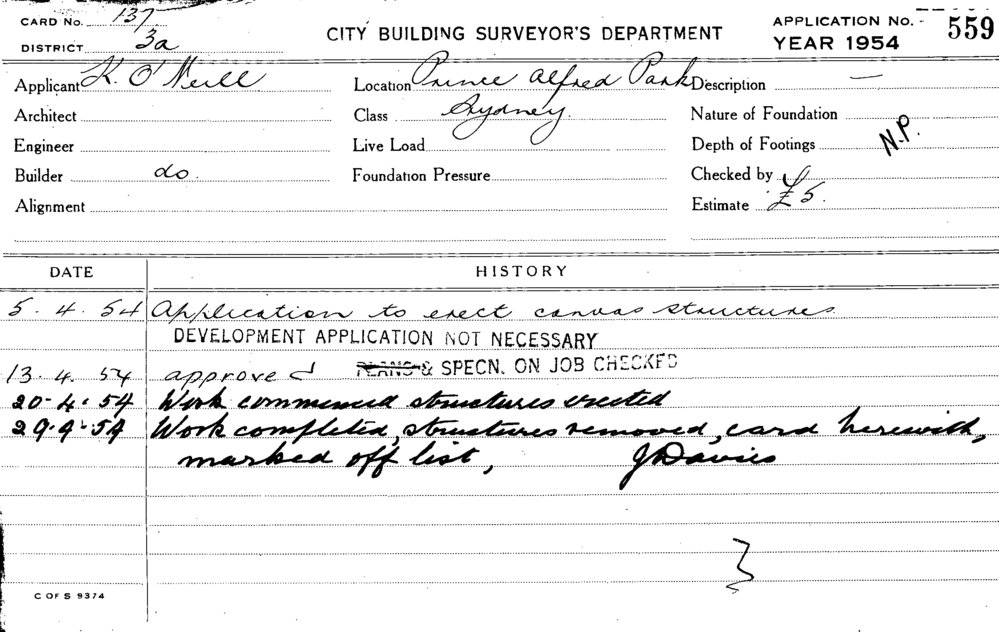 CARD No. 137
DISTRICT 3a
CITY BUILDING SURVEYOR'S DEPARTMENT
APPLICATION No. 559
YEAR 1954
Applicant K. O'Neill
Location Prince Alfred Park
Description —
Architect
Class Sydney.
Nature of Foundation
Engineer
Live Load
Depth of Footings N.P.
Builder do.
Foundation Pressure
Checked by
Alignment
Estimate £5.
DATE HISTORY
5. 4. 54 Application to erect canvas structures
DEVELOPMENT APPLICATION NOT NECESSARY
13. 4. 54 approved PLANS & SPECN. ON JOB CHECKED
20-4-54 Work commenced structures erected
29-4-54 Work completed, structures removed, card herewith,
marked off list, J Davies
C OF S 9374